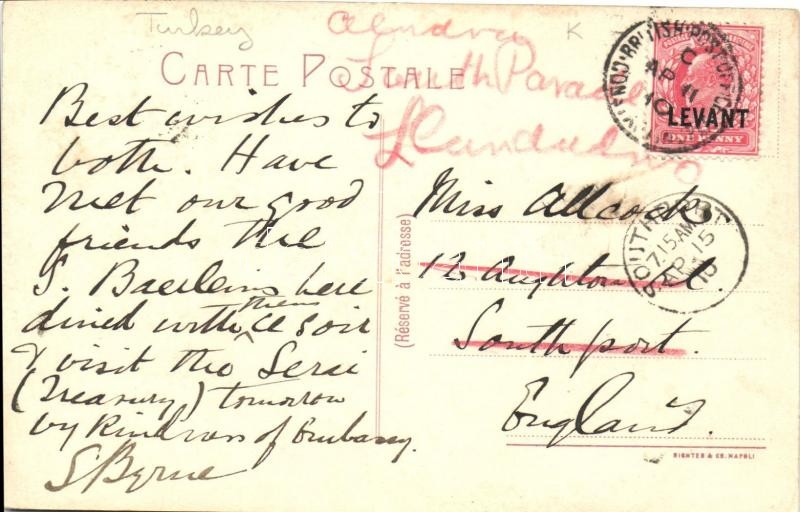 Turkey
K
CARTE POSTALE
South Parade
Llandudno
Best wishes to
both. Have
met our good
friends the
S. Baerleins here
dined with them ce soir
& visit the Serai
(Treasury) tomorrow
by kindness of Embassy.
S Byrne
(Réservé à l'adresse)
Miss Allcocks
13 Aughton
Southport.
England.
RICHTER & CO. NAPOLI
BRITISH POST OFFICE
C
AP 11
10
LEVANT
ONE PENNY
SOUTHPORT
7.15 AM
AP 15
10